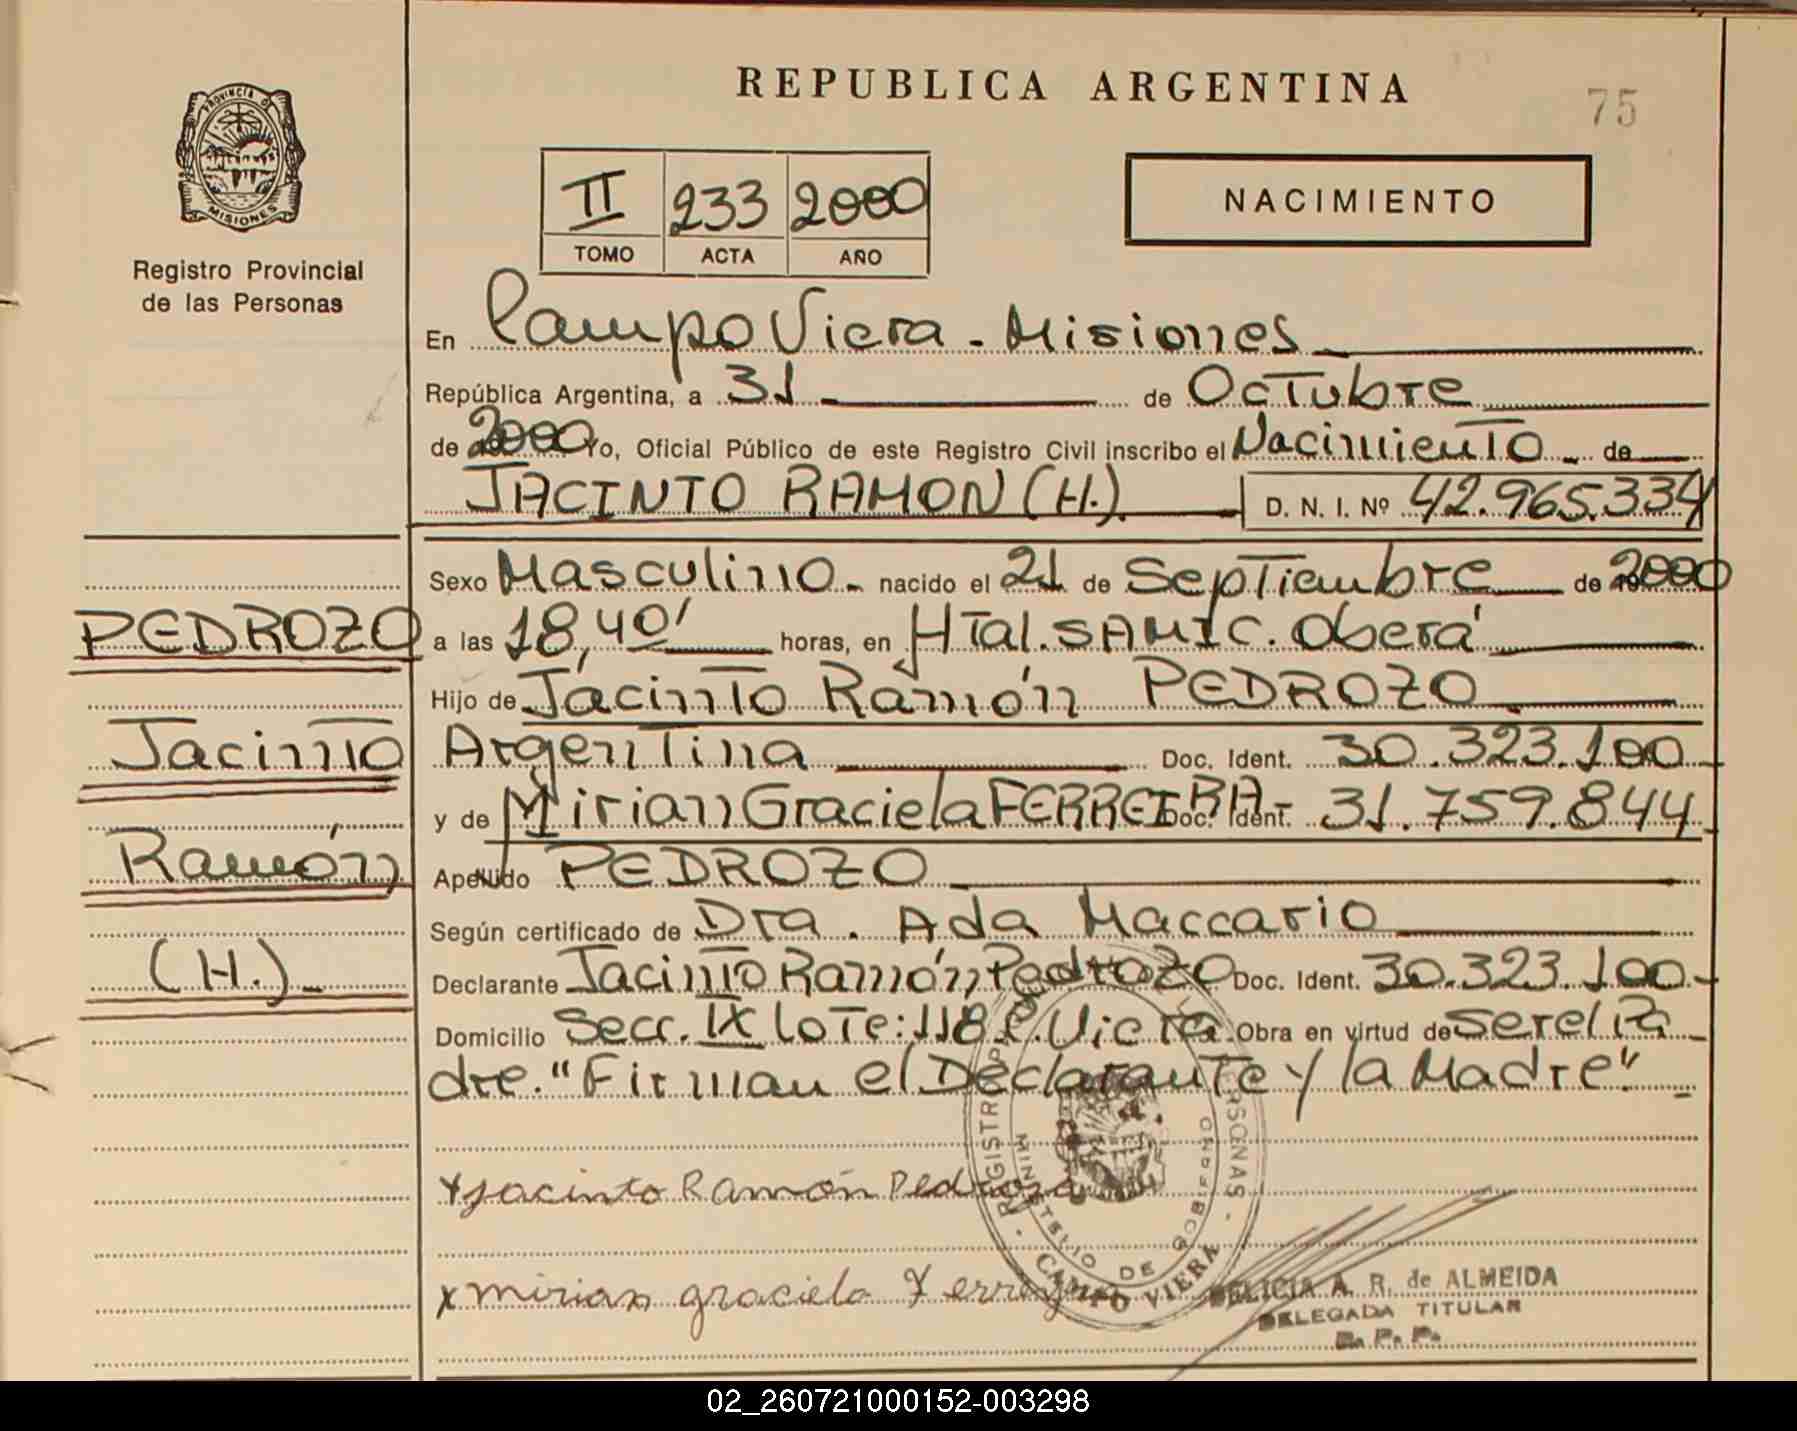 REPUBLICA ARGENTINA
75
PROVINCIA DE
MISIONES
Registro Provincial
de las Personas
II 233 2000
TOMO ACTA AÑO
NACIMIENTO
En Campo Viera - Misiones
República Argentina, a 31 de Octubre
de 2000 Yo, Oficial Público de este Registro Civil inscribo el Nacimiento de
JACINTO RAMON (H.) D. N. I. Nº 42.965.334
Sexo Masculino - nacido el 21 de Septiembre de 2000
PEDROZO
a las 18,40' horas, en Htal. SAMIC. Oberá
Hijo de Jacinto Ramón PEDROZO
Jacinto
Argentina Doc. Ident. 30.323.100
y de Mirian Graciela FERREIRA Doc. Ident. 31.759.844
Ramón
Apellido PEDROZO
Según certificado de Dra. Ada Maccario
(H.)
Declarante Jacinto Ramón Pedrozo Doc. Ident. 30.323.100-
Domicilio Secc. IX Lote: 118 C. Viera Obra en virtud de ser el Pa
dre. "Firman el Declarante y la Madre".
x Jacinto Ramón Pedrozo
x mirian graciela Ferreyra
MINISTERIO DE GOBIERNO
CAMPO VIERA
DELICIA A. R. de ALMEIDA
DELEGADA TITULAR
R. P. P.
02_260721000152-003298